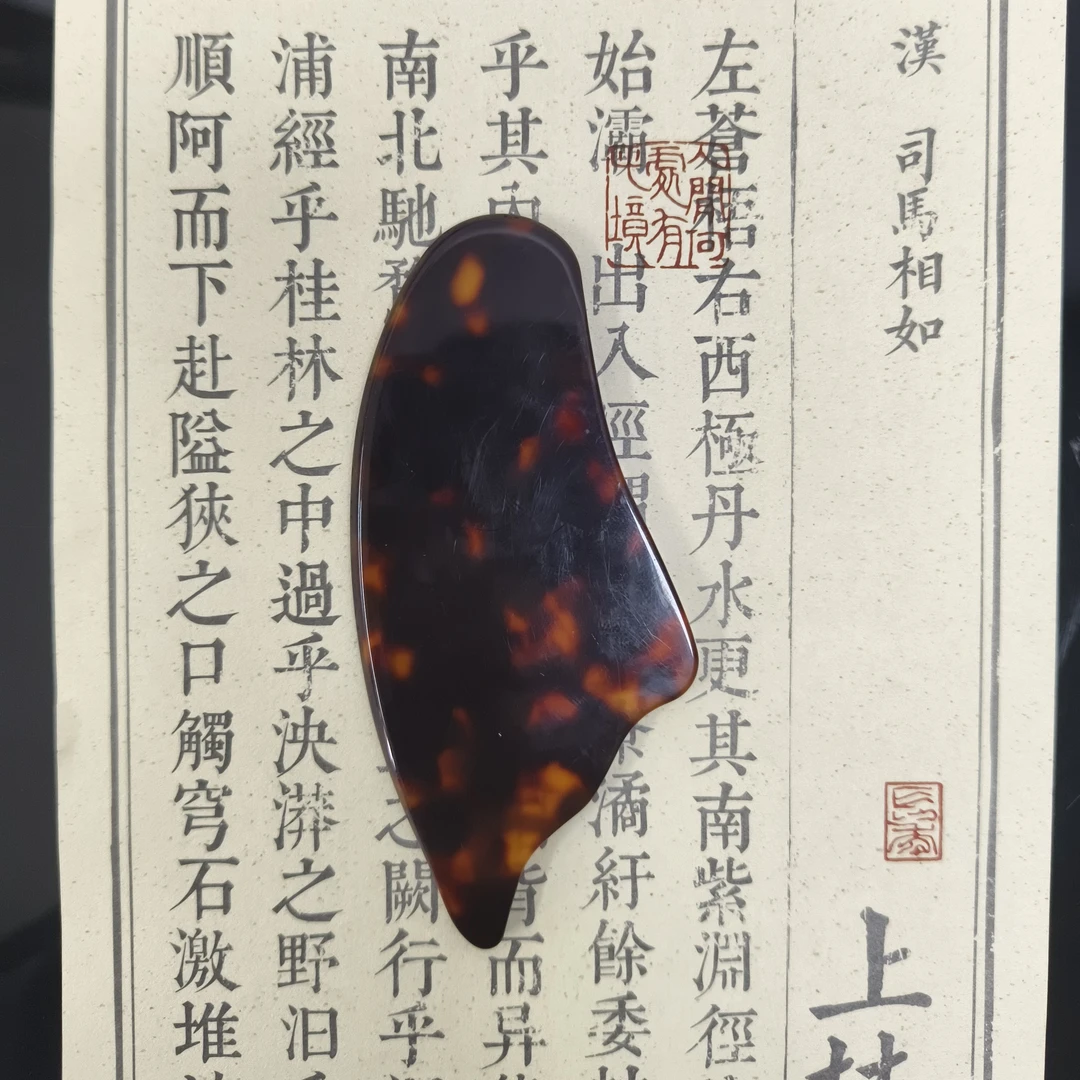 漢 司馬相如
上林
左蒼梧右西極丹水更其南紫淵徑
始灞出入涇渭潏紆餘委
乎其內背而异
南北馳之闕行乎
浦經乎桂林之中過乎泱漭之野汩
順阿而下赴隘狹之口觸穹石激堆